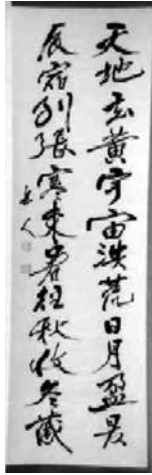 天地玄黄宇宙洪荒日月盈昃
辰宿列張寒來暑往秋收冬藏
人